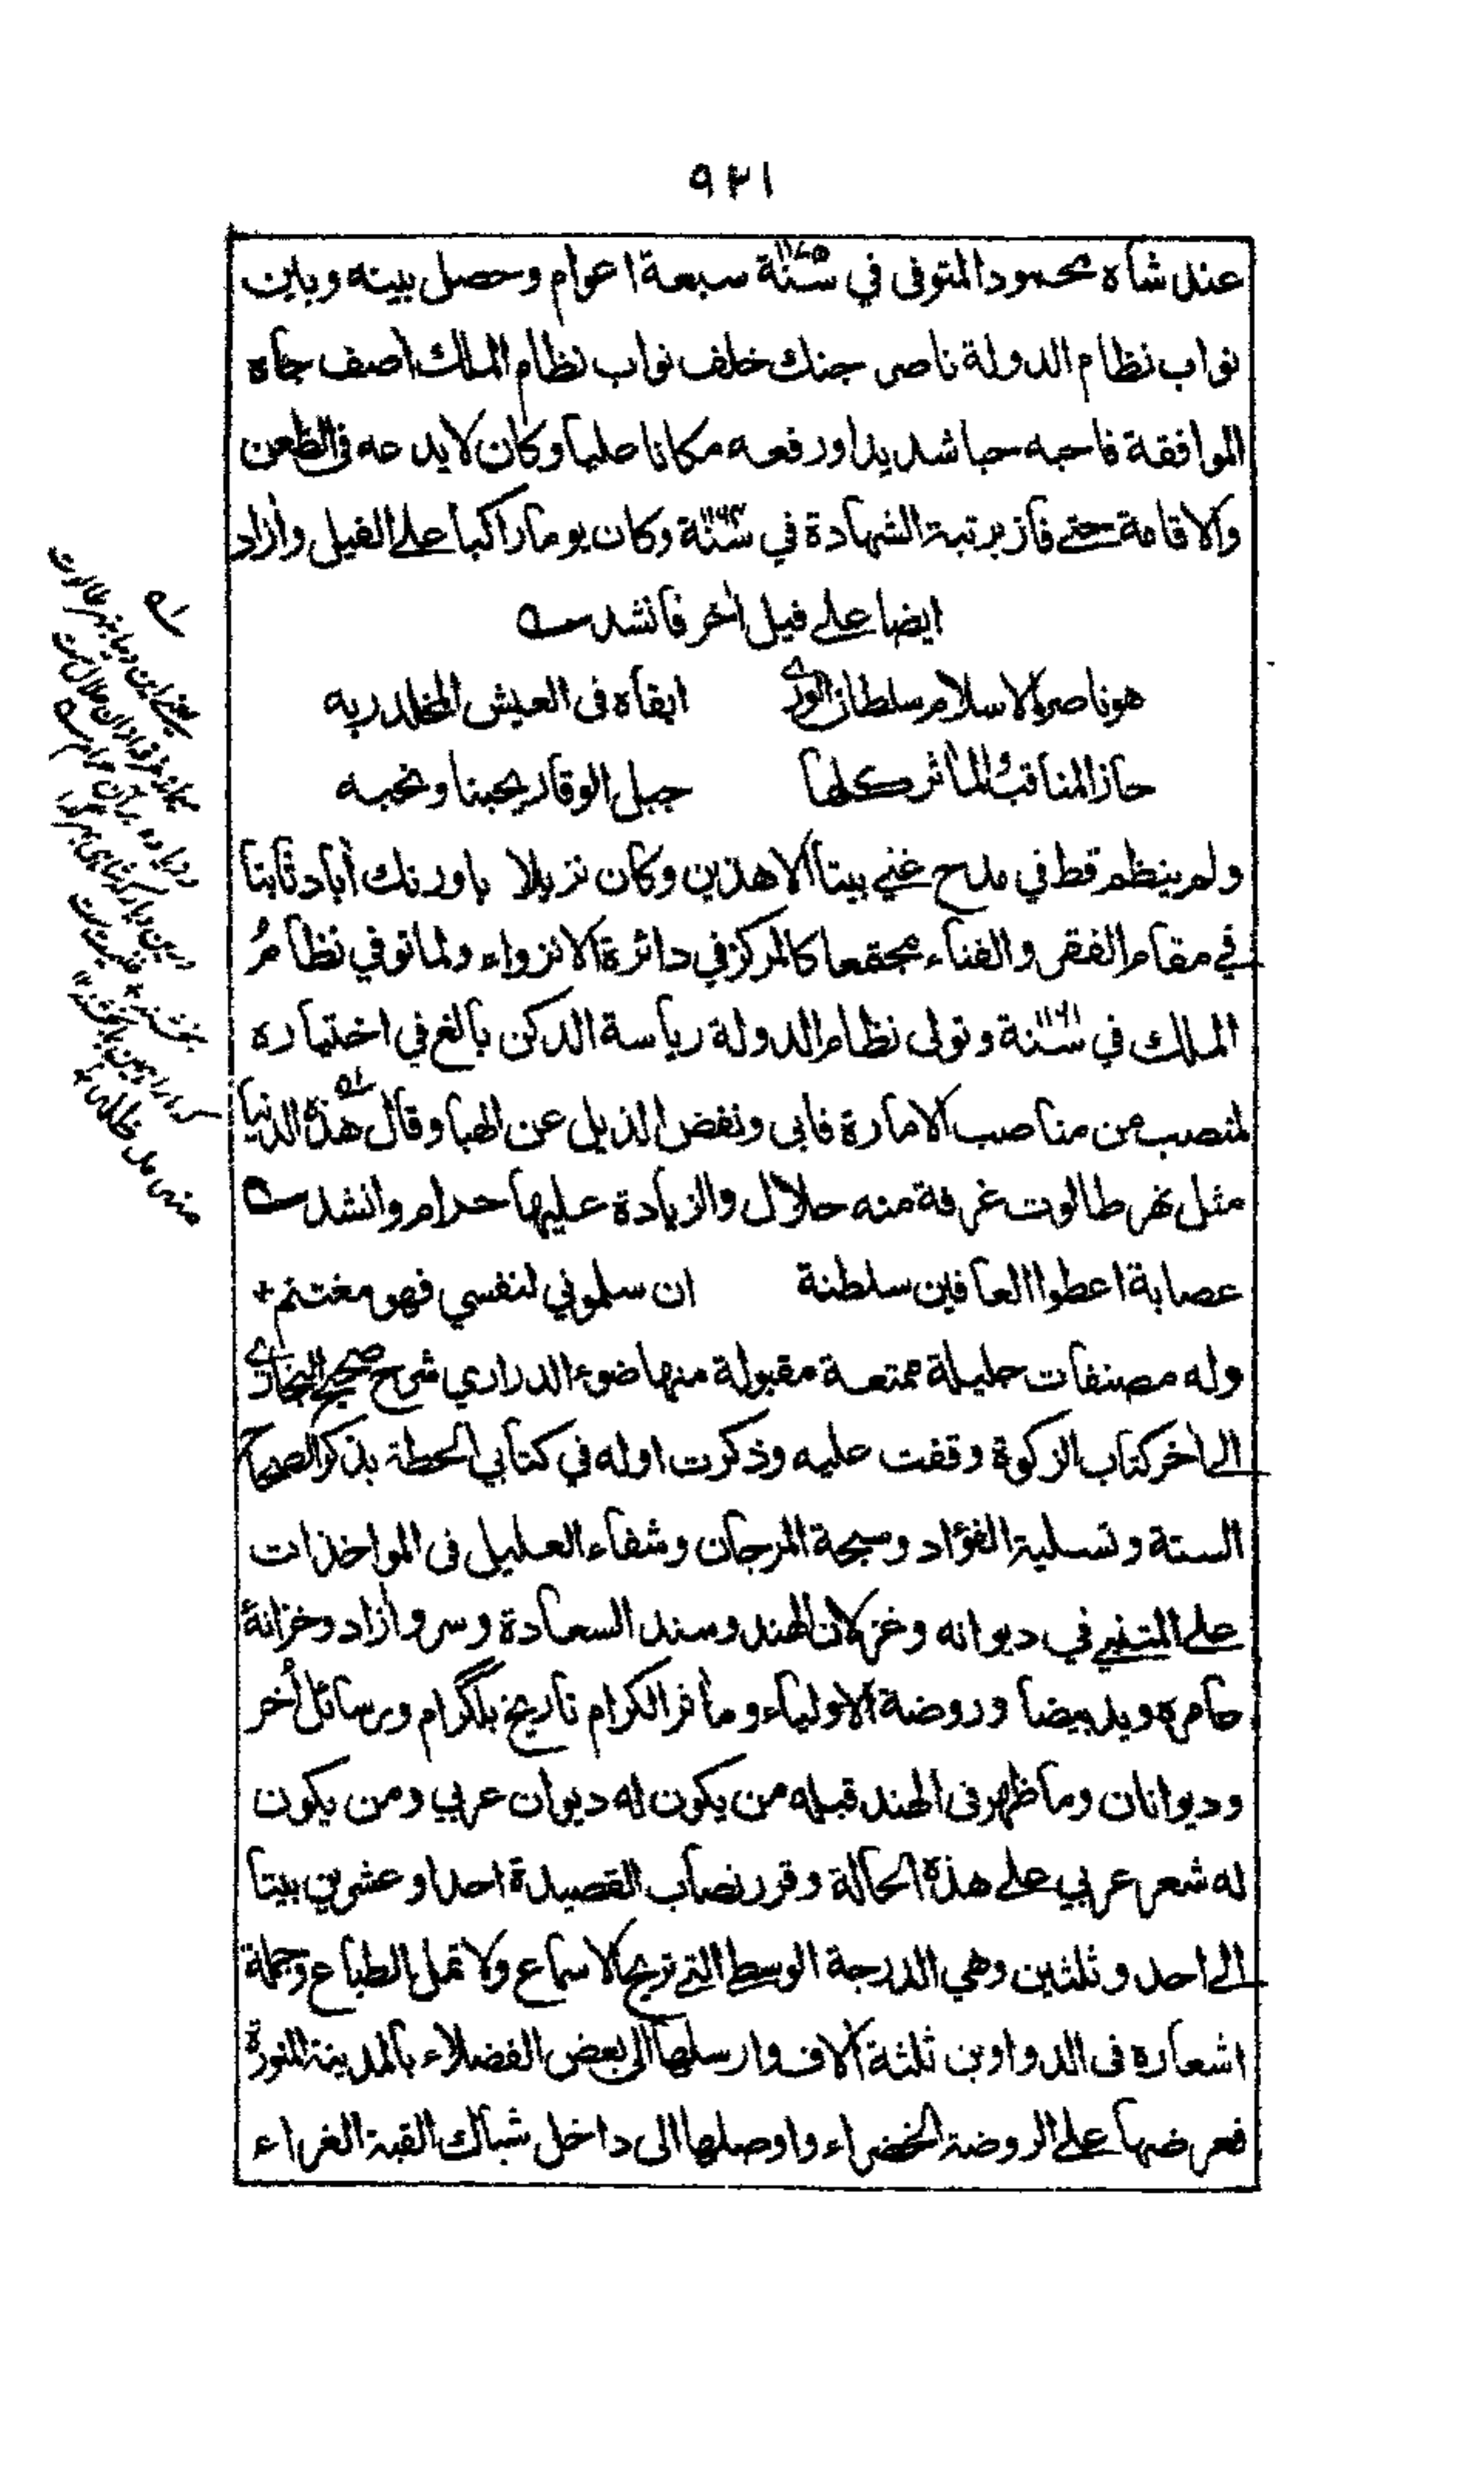 ٩٢١
عند شاه محمود المتوفى في سنة ١١٧٥ سبعة اعوام وحصل بينه وبين
نواب نظام الدولة ناصر جنك خلف نواب نظام الملك آصف جاه
الموافقة فاحبه حبا شديدا ورفعه مكانا عليا وكان لا يدعه فى الظعن
والاقامة حتى فاز برتبة الشهادة في سنة ١١٦٤ وكان يوما راكبا على الفيل وآزاد
ايضا على فيل آخر فانشد
هو ناصر الاسلام سلطان الورى ابقاه فى العيش المخلد ربه
حاز المناقب والمآثر كلها جبل الوقار يحبنا ونحبه
ولم ينظم قط في مدح غني بيتا الا هذين وكان نزيلا باورنك آباد ثابتا
في مقام الفقر والفناء مجتمعا كالمركز في دائرة الانزواء ولما توفي نظام
الملك في سنة ١١٦١ وتولى نظام الدولة رياسة الدكن بالغ في اختياره
لمنصب من مناصب الامارة فابى ونفض الذيل عن الهبا وقال هذه الدنيا
مثل نهر طالوت غرفة منه حلال والزيادة عليها حرام وانشد
عصابة اعطوا العافين سلطنة ان سلموني لنفسي فهو مغتنم +
وله مصنفات جليلة ممتعة مقبولة منها ضوء الدراري شرح صحيح البخاري
الى آخر كتاب الزكوة وقفت عليه وذكرت اوله في كتابي الحطة بذكر الصحاح
الستة وتسلية الفؤاد وسبحة المرجان وشفاء العليل فى المواخذات
على المتنبي في ديوانه وغزلان الهند وسند السعادة وسرو آزاد وخزانۀ
عامره ويد بيضا وروضة الاولياء ومآثر الكرام تاريخ بلگرام ورسائل أخر
وديوانان وما ظهر فى الهند قبله من يكون له ديوان عربي ومن يكون
له شعر عربي على هذه الحالة وقرر نصاب القصيدة احدا وعشرين بيتا
الى احد وثلثين وهي الدرجة الوسط التي تريح الاسماع ولا تمل الطباع وجملة
اشعاره فى الدواوين ثلثة آلاف وارسلها الى بعض الفضلاء بالمدينة المنورة
فعرضها على الروضة الخضراء واوصلها الى داخل شباك القبة الغراء